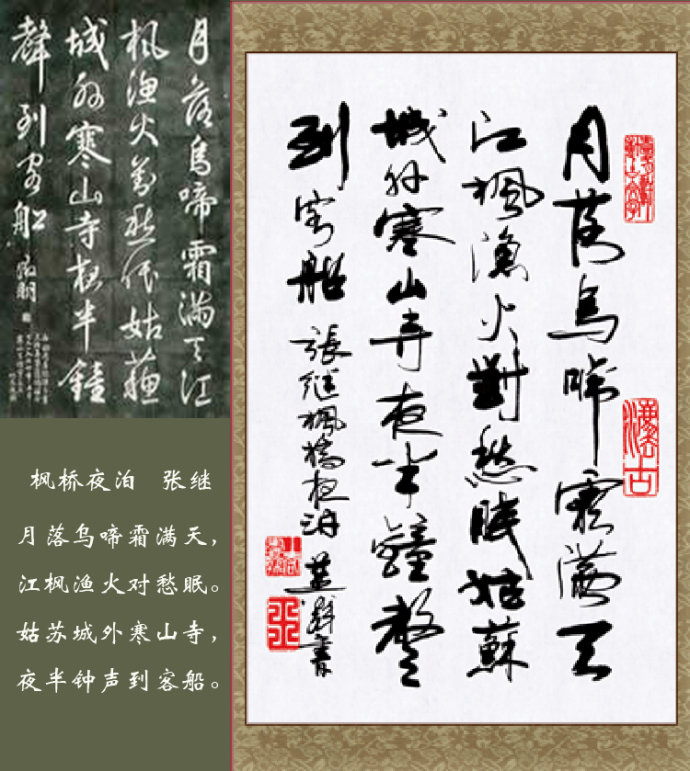 月落烏啼霜滿天江
楓漁火對愁眠姑蘇
城外寒山寺夜半鐘
聲到客船
枫桥夜泊 张继
月落乌啼霜满天，
江枫渔火对愁眠。
姑苏城外寒山寺，
夜半钟声到客船。
月落烏啼霜滿天
江楓漁火對愁眠姑蘇
城外寒山寺夜半鐘聲
到客船 張继楓橋夜泊 書